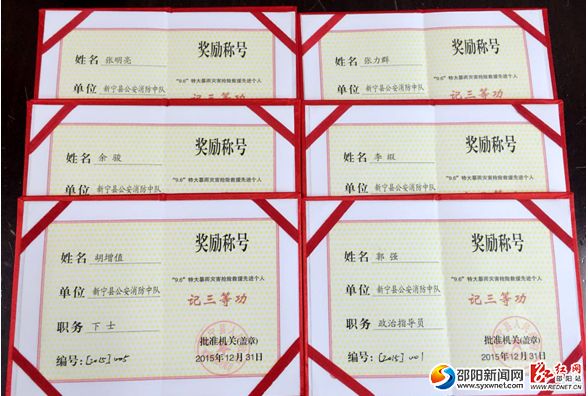 奖励称号
姓名 张明亮
"9.6"特大暴雨灾害抢险救援先进个人
单位 新宁县公安消防中队
记三等功
奖励称号
姓名 张力群
"9.6"特大暴雨灾害抢险救援先进个人
单位 新宁县公安消防中队
记三等功
奖励称号
姓名 余骏
"9.6"特大暴雨灾害抢险救援先进个人
单位 新宁县公安消防中队
奖励称号
姓名 李
"9.6"特大暴雨灾害抢险救援先进个人
单位 新宁县公安消防中队
奖励称号
姓名 胡增值
"9.6"特大暴雨灾害抢险救援先进个人
单位 新宁县公安消防中队
记三等功
职务 下士
批准机关(盖章)
编号: [2015] 005
2015年12月31日
奖励称号
姓名 郭强
"9.6"特大暴雨灾害抢险救援先进个人
单位 新宁县公安消防中队
记三等功
职务 政治指导员
批准机关(盖章)
编号: [2015] 001
2015年12月31日
邵阳新闻网
www.syxwnet.com
红网
邵阳站
WWW.REDNET.CN